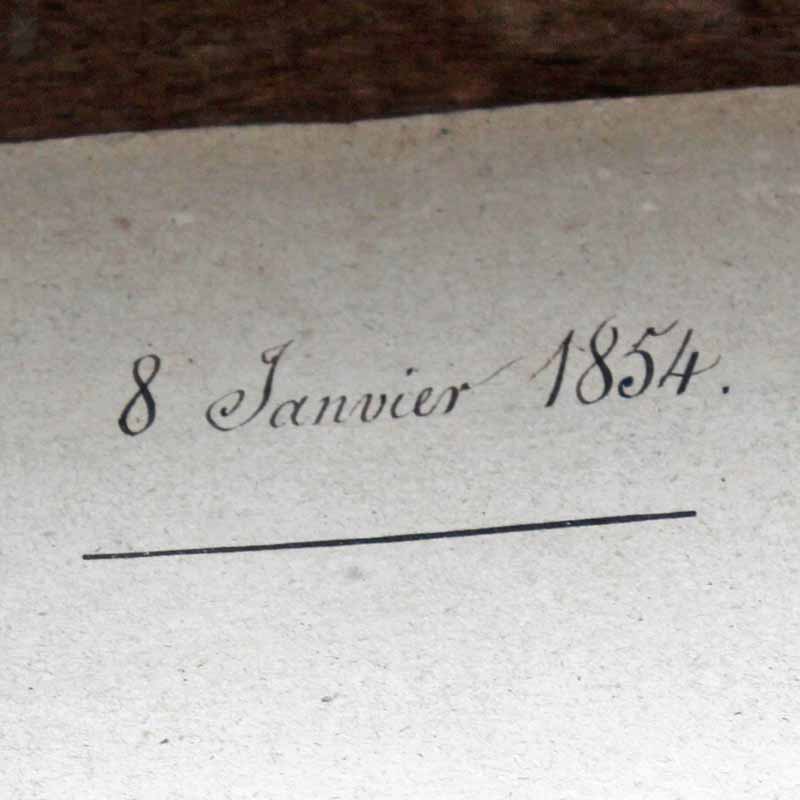 8 Janvier 1854.